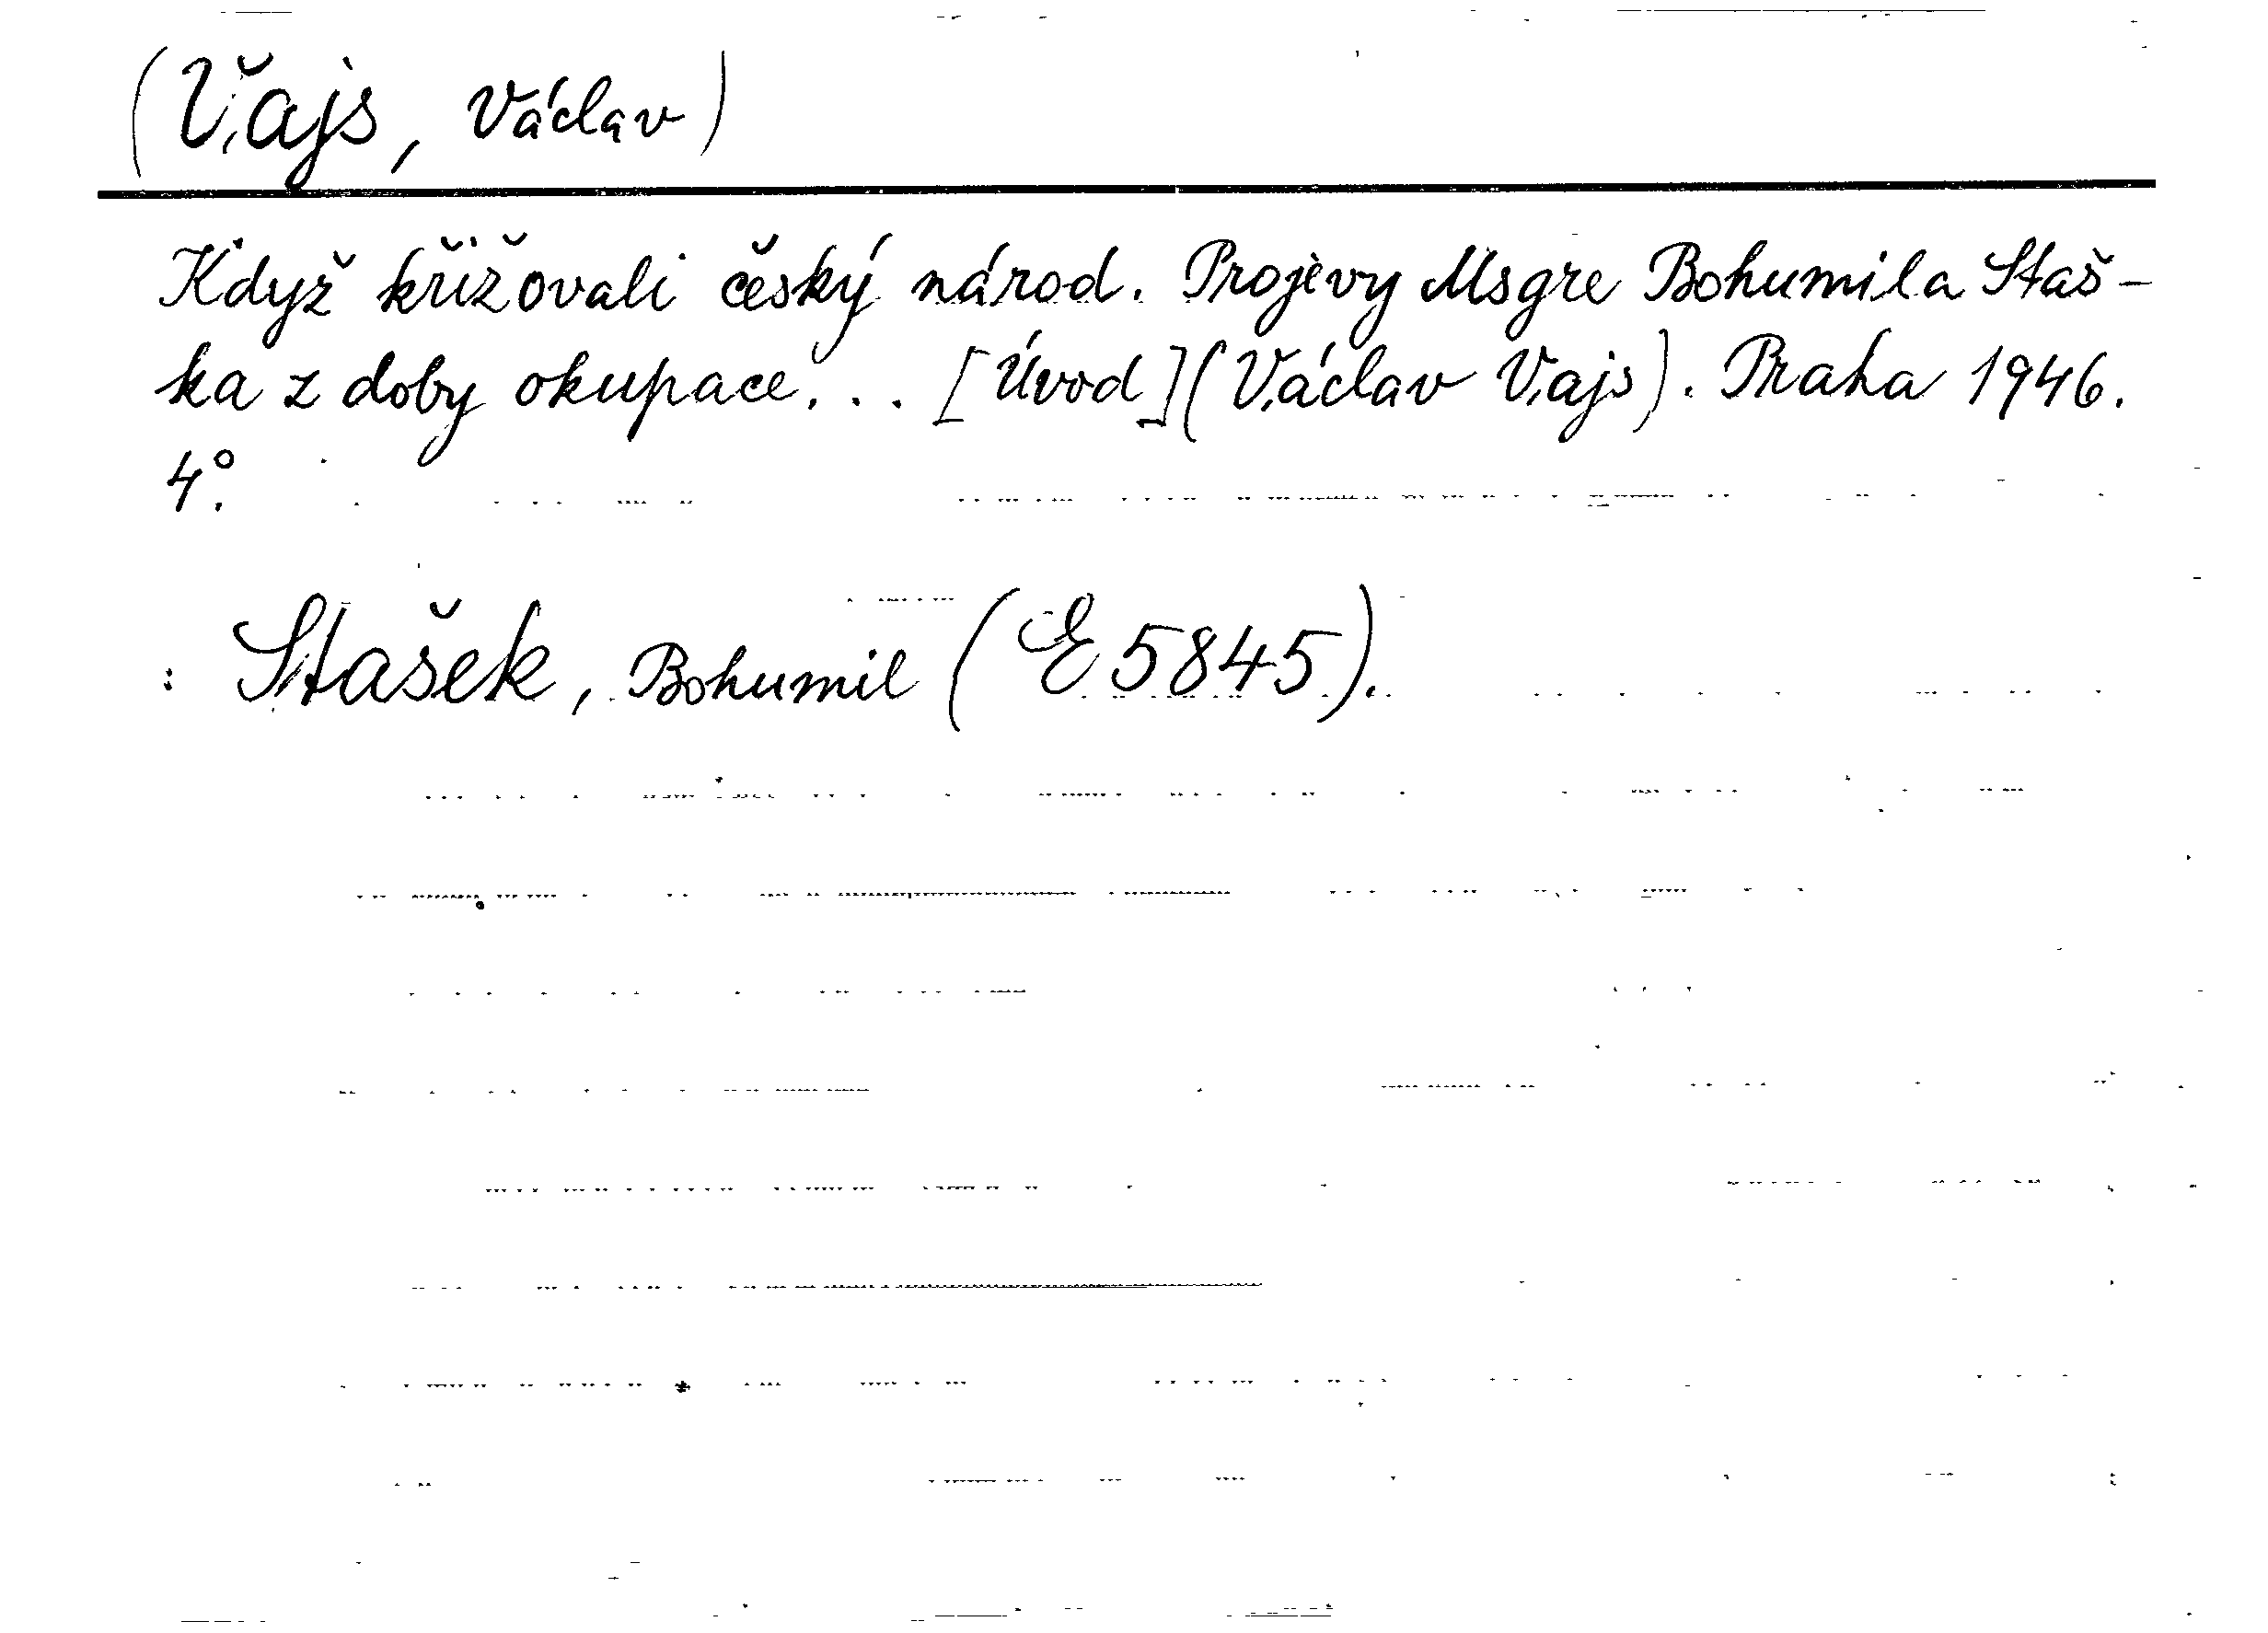 (Vajs, Václav)
Když křižovali český národ. Projevy Msgre Bohumila Staš-
ka z doby okupace... [Úvod] (Václav Vajs). Praha 1946.
4°.
: Stašek, Bohumil (E 5845).